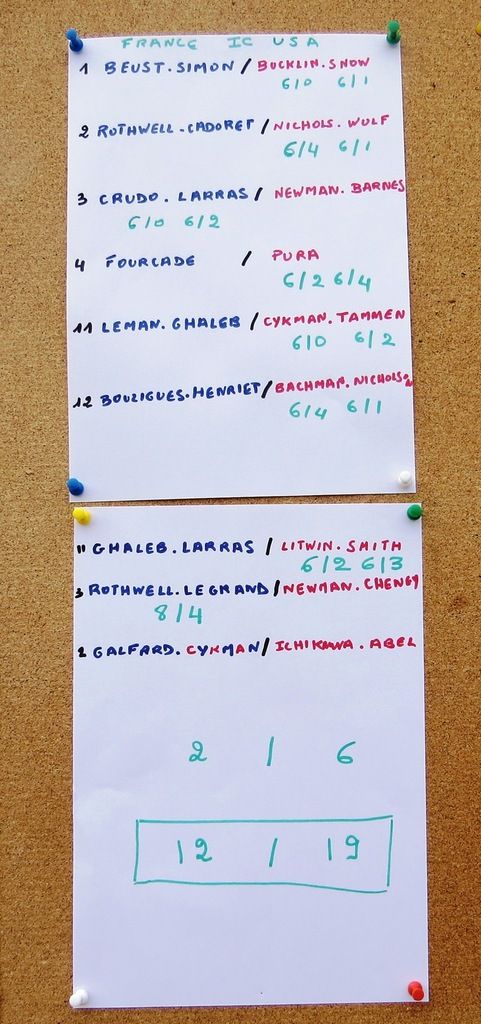 FRANCE IC USA
1 BEUST.SIMON / BUCKLIN.SNOW
6/0 6/1
2 ROTHWELL.CADORET / NICHOLS.WULF
6/4 6/1
3 CRUDO.LARRAS / NEWMAN.BARNES
6/0 6/2
4 FOURCADE / PURA
6/2 6/4
11 LEMAN.GHALEB / CYKMAN.TAMMEN
6/0 6/2
12 BOUZIGUES.HENRIET / BACHMAN.NICHOLSON
6/4 6/1
11 GHALEB.LARRAS / LITWIN.SMITH
6/2 6/3
3 ROTHWELL.LEGRAND / NEWMAN.CHENGY
8/4
2 GALFARD.CYKMAN / ICHIKAWA.ABEL
2 / 6
12 / 19